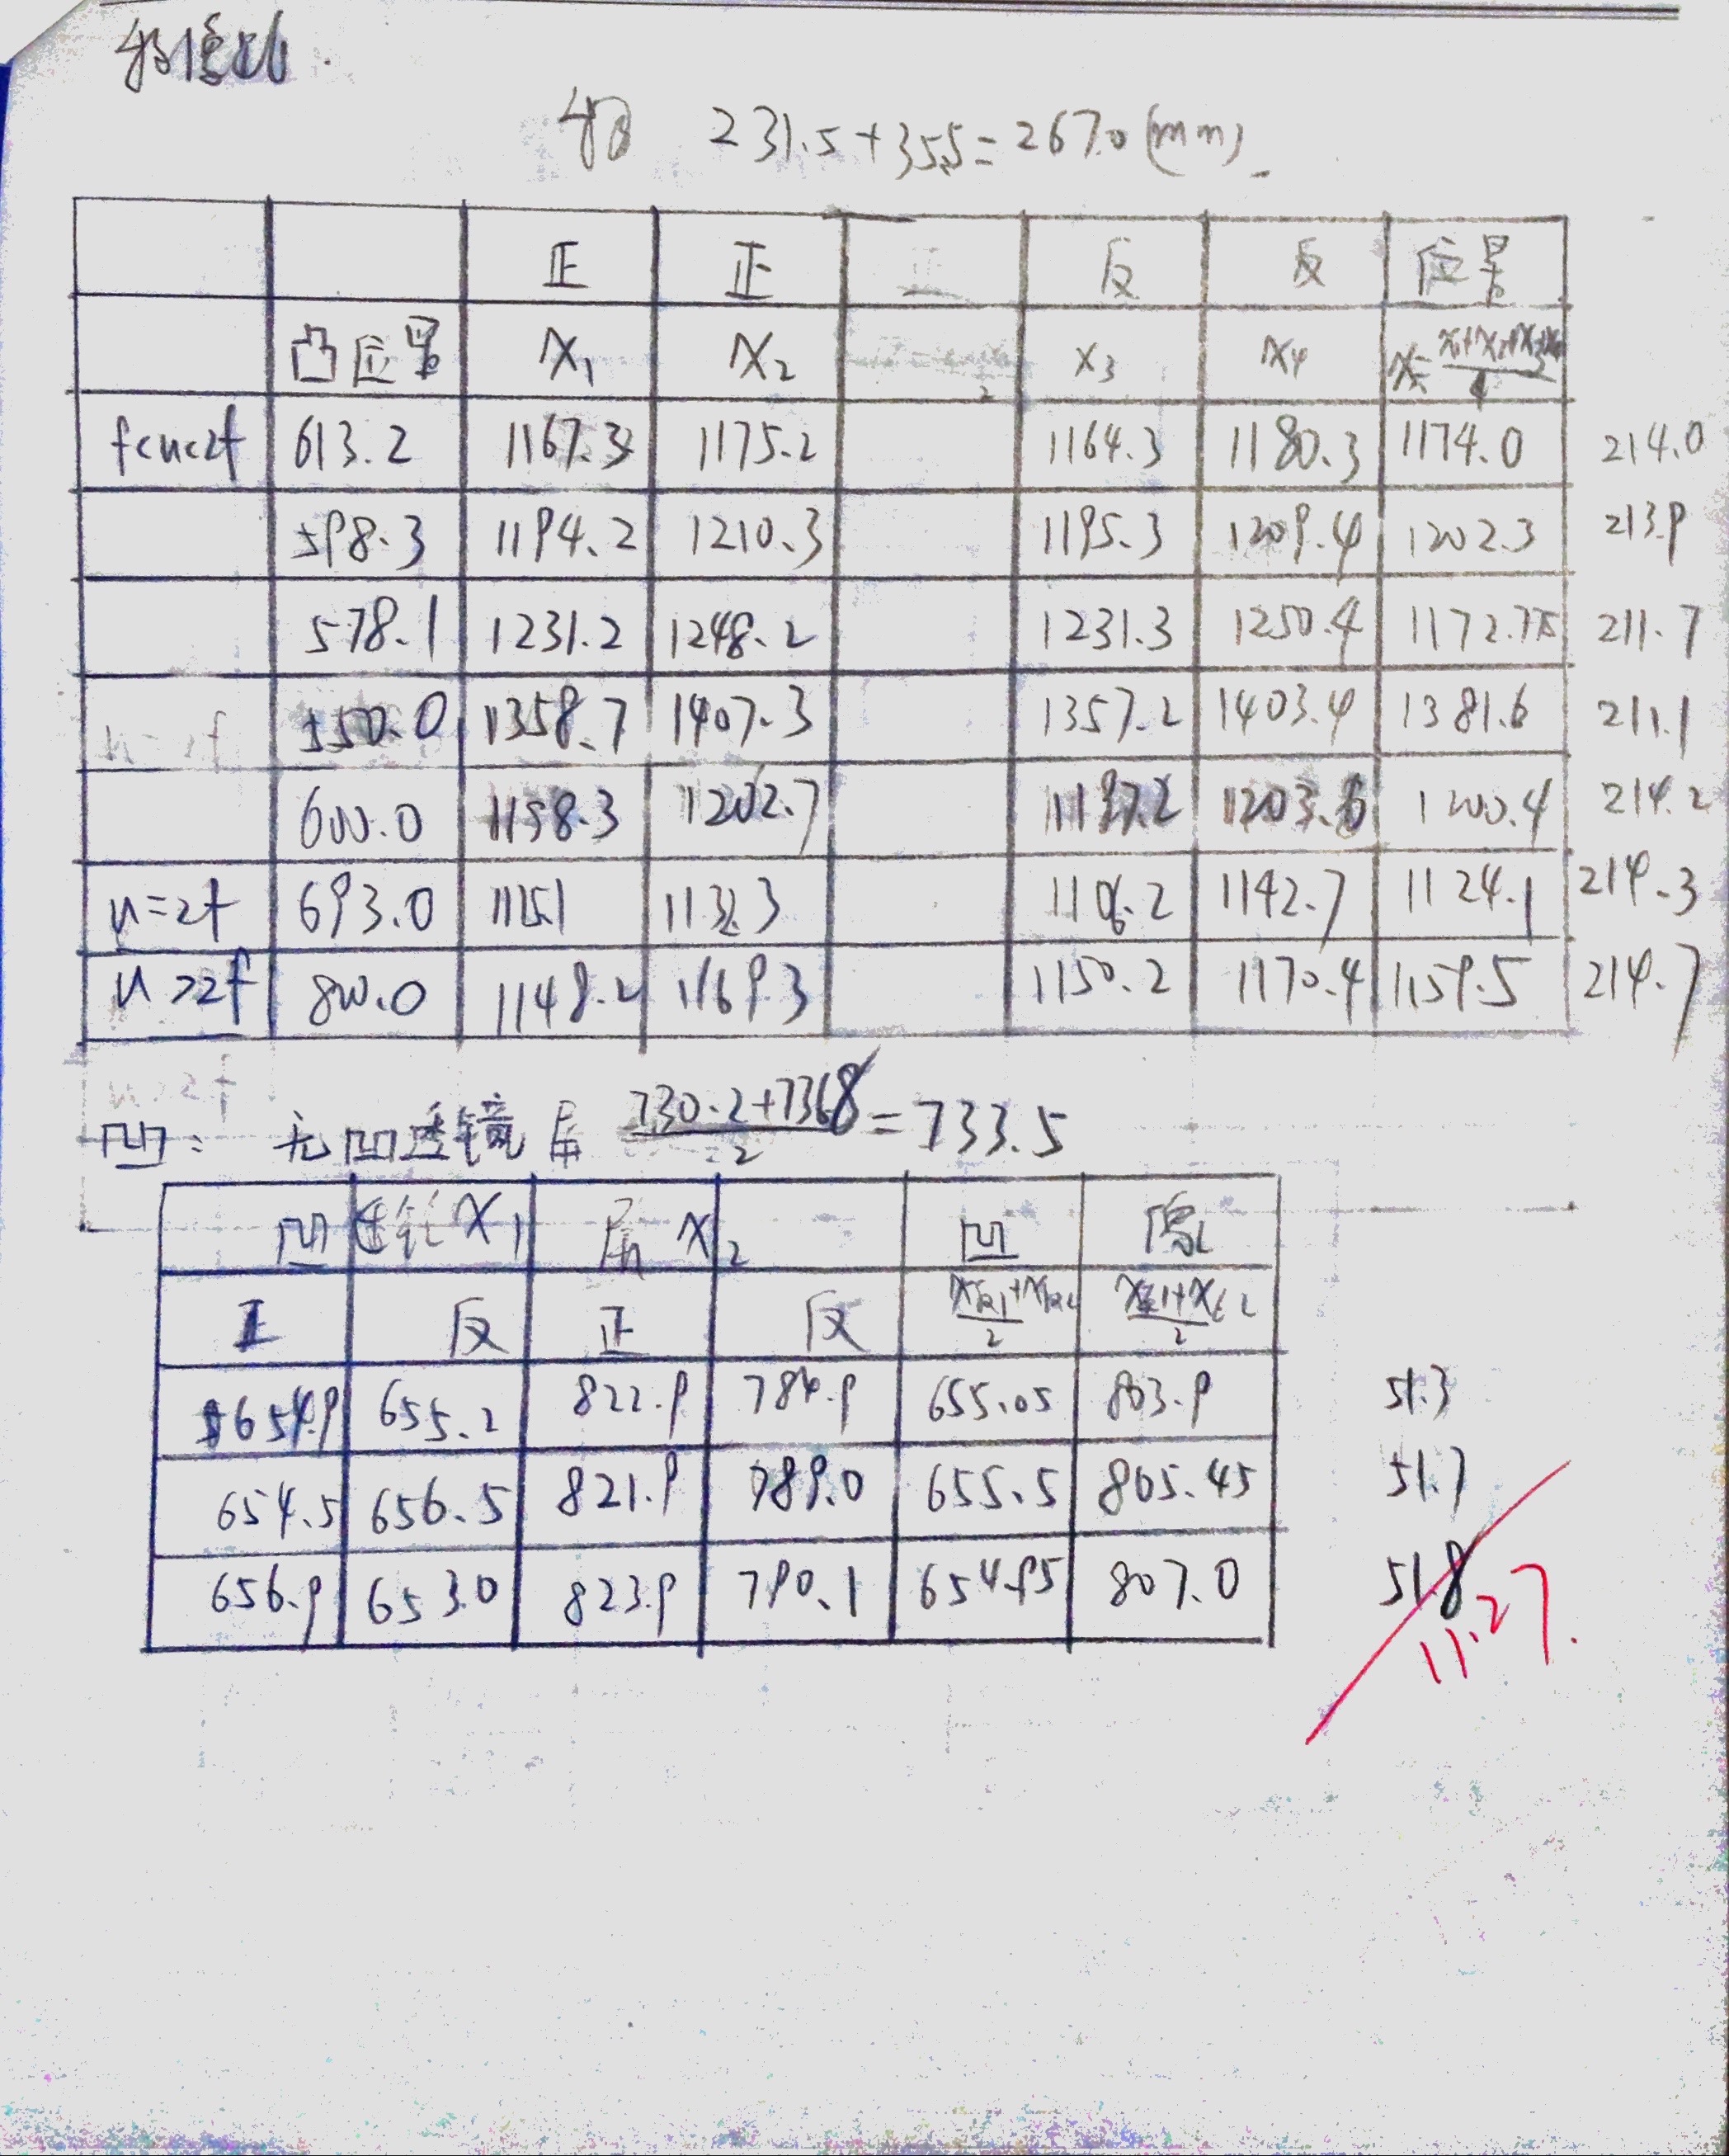 物 231.5+35.5=267.0(mm)
正 正 反 反 位置
凸位置 X₁ X₂ X₃ X₄ X=(X₁+X₂+X₃+X₄)/4
f<u<2f 613.2 1167.3 1175.2 1164.3 1180.3 1174.0 214.0
598.3 1194.2 1210.3 1195.3 1209.4 1202.3 213.9
578.1 1231.2 1248.2 1231.3 1250.4 1172.75 211.7
550.0 1358.7 1407.3 1357.2 1403.4 1381.6 211.1
600.0 1158.3 1202.7 1203.6 1200.4 214.2
u=2f 693.0 1115.1 1132.3 1106.2 1142.7 1124.1 214.3
u>2f 800.0 1149.2 1169.3 1150.2 1170.4 1159.5 214.7
凹: 无凹透镜后 (730.2+736.8)/2=733.5
凹透镜X₁ 后X₂ 凹 像
正 反 正 反
654.9 655.2 822.9 784.9 655.05 803.9 51.3
654.5 656.5 821.9 789.0 655.5 805.45 51.7
656.9 653.0 823.9 790.1 654.95 807.0 51.8
11.27.